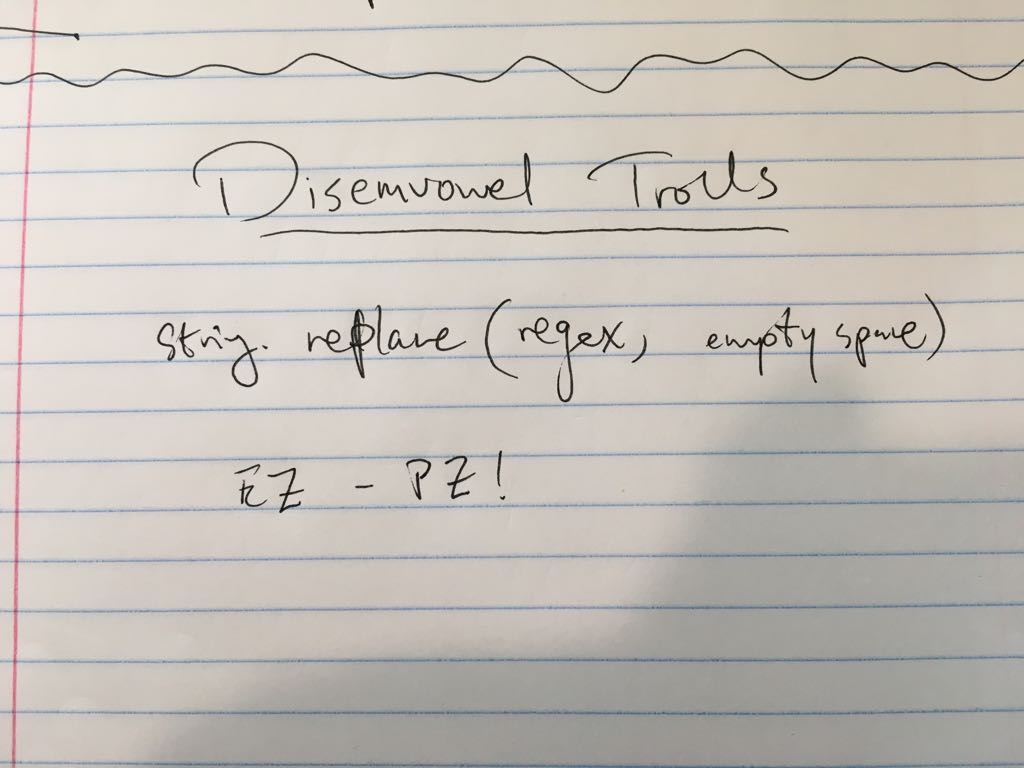 Disemvowel Trolls
string. replace (regex, empty space)
EZ - PZ!